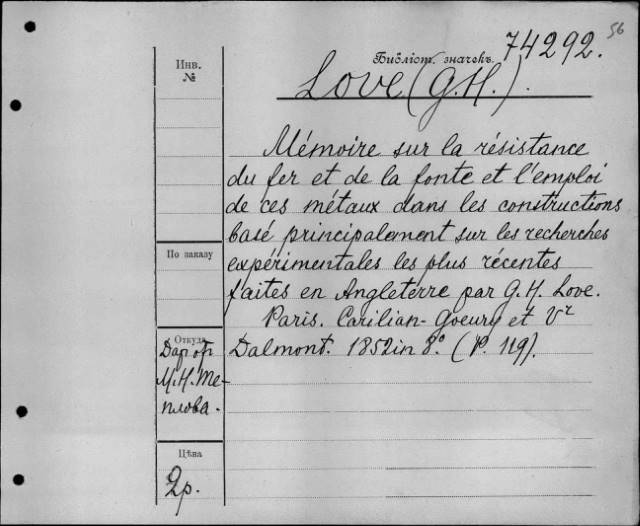 56
74292.
Библіот. значекъ
Love (G.H.).
Инв.
№
Mémoire sur la résistance
du fer et de la fonte et l'emploi
de ces métaux dans les constructions
basé principalement sur les recherches
expérimentales les plus récentes
faites en Angleterre par G.H. Love.
Paris. Carilian-Goeury et Vr
Dalmont. 1852 in 8°. (P. 119).
По заказу
Откуда
Дар от
М.Н. Те-
плова.
Цѣна
2р.